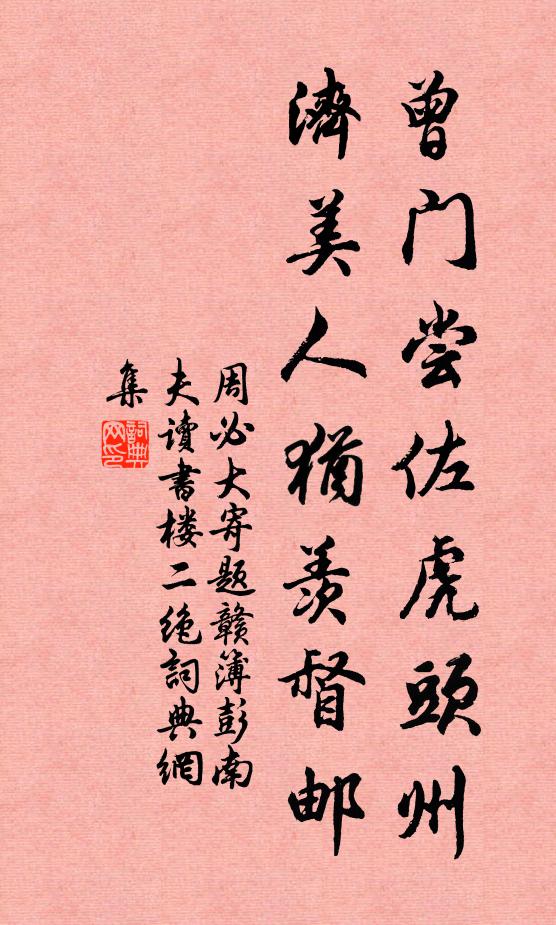 曾门尝佐虎頭州
濟美人犹羡督邮
周必大寄题赣簿彭南
夫读書楼二绝詞典網
集
詞典
网印